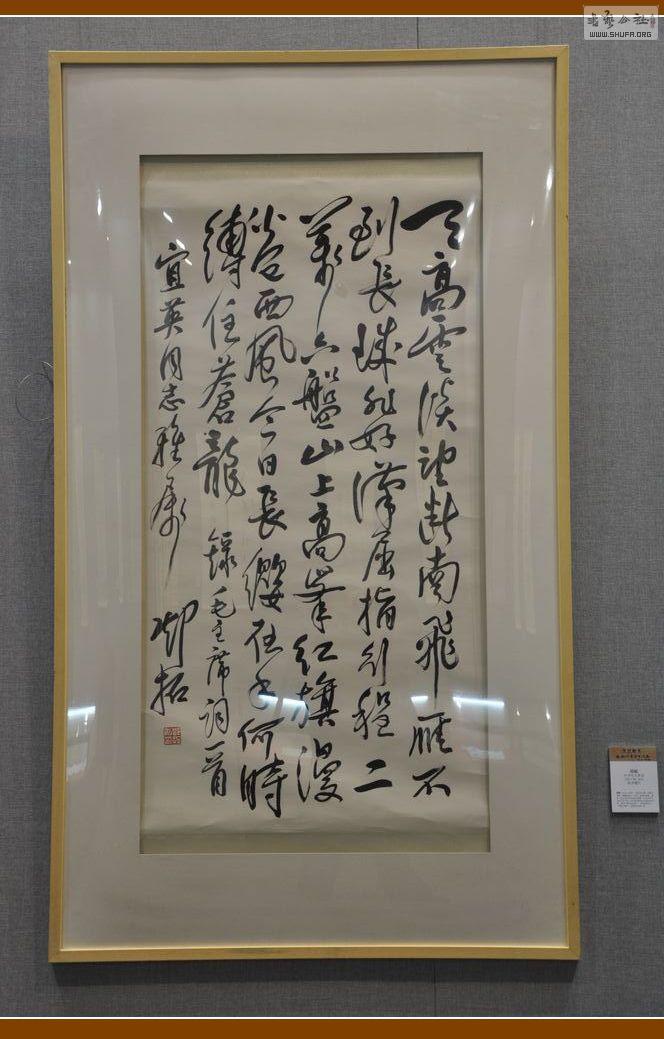 天高雲淡望斷南飛雁不
到長城非好漢屈指行程二
萬六盤山上高峯紅旗漫
卷西風今日長纓在手何時
縛住蒼龍 錄毛主席詞一首
宜英同志雅屬 鄧拓
書藝公社
WWW.SHUFA.ORG